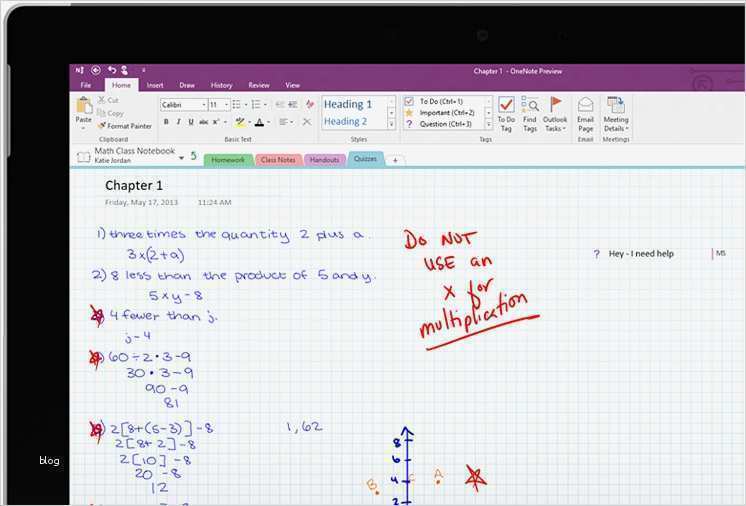 Chapter 1 - OneNote Preview
File Home Insert Draw History Review View
Paste
Cut
Copy
Format Painter
Clipboard
Calibri 11
B I U abc
Basic Text
Heading 1
Heading 2
Styles
To Do (Ctrl+1)
Important (Ctrl+2)
Question (Ctrl+3)
To Do Tag
Find Tags
Outlook Tasks
Tags
Email Page
Email
Meeting Details
Meetings
Math Class Notebook
Katie Jordan
Homework Class Notes Handouts Quizzes +
Chapter 1
Friday, May 17, 2013 11:24 AM
1) three times the quantity 2 plus a.
3x(2+a)
2) 8 less than the product of 5 and y.
5xy-8
) 4 fewer than j.
j-4
) 60÷2•3-9
30•3-9
90-9
81
) 2[8+(5-3)]-8
2[8+2]-8
2[10]-8
20-8
12
DO NOT
USE an
x for
multiplication
? Hey - I need help
MS
1,62
8
6
4
2
B
C
A
blog